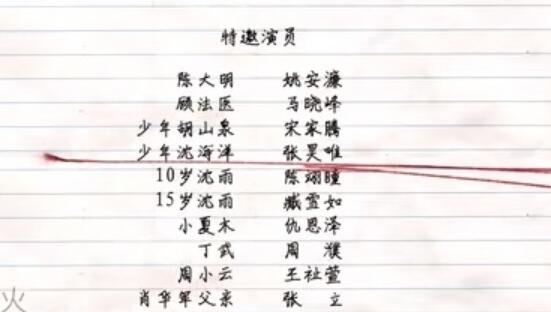 特邀演员
陈大明 姚安濂
顾法医 马晓峰
少年胡山泉 宋家腾
少年沈海洋 张昊唯
10岁沈雨 陈翊曈
15岁沈雨 臧雪如
小夏木 仇恩泽
丁武 周濮
周小云 王祉萱
肖华军父亲 张立
火